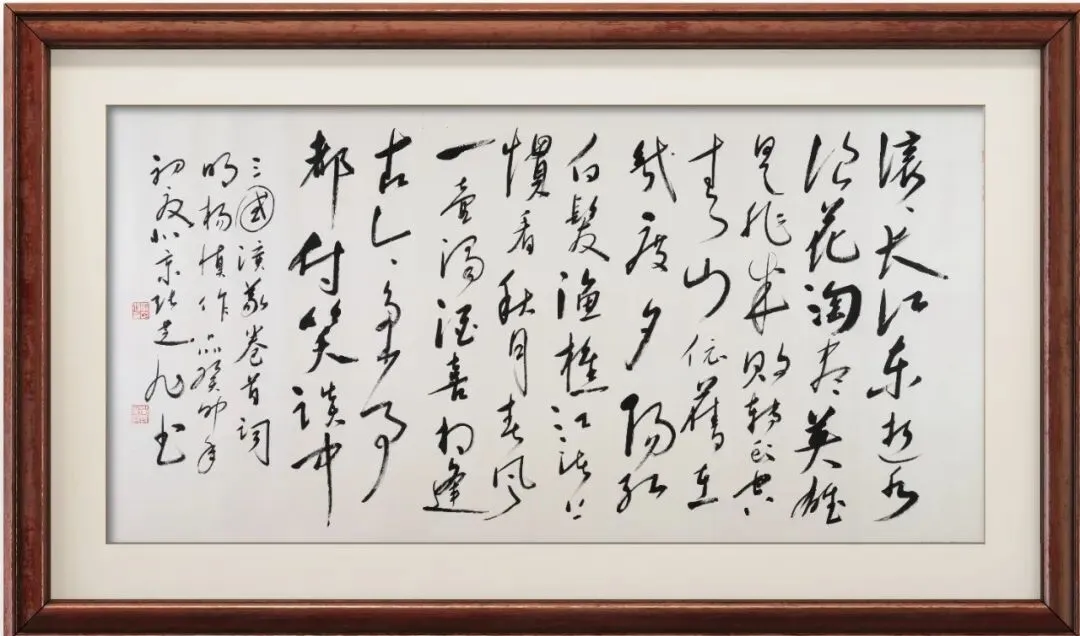 滚滚长江东逝水
浪花淘尽英雄
是非成败转头空
青山依舊在
幾度夕阳红
白髮渔樵江渚上
慣看秋月春风
一壶浊酒喜相逢
古今多少事
都付笑谈中
三國演义卷首词
明杨慎作品癸卯年
初夏北京张旭书